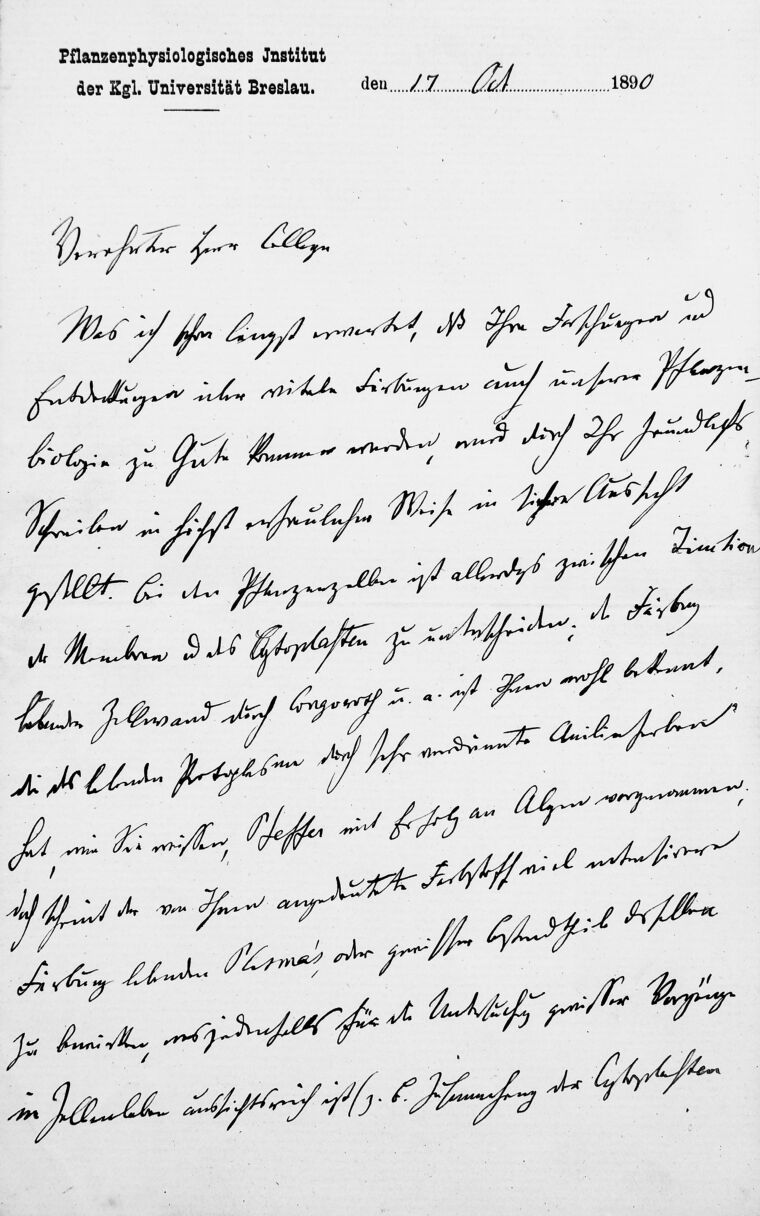 Pflanzenphysiologisches Jnstitut
der Kgl. Universität Breslau.
den 17 Oct 1890
Verehrter Herr College
Was ich schon längst erwartet, daß Ihre Forschungen und
Entdeckungen über vitale Färbungen auch unserer Pflanzen-
biologie zu Gute kommen werden, wird durch Ihr freundlichstes
Schreiben in höchst erfreulicher Weise in sichere Aussicht
gestellt. Bei den Pflanzenzellen ist allerdings zwischen Tinction
der Membran und des Cytoplasten zu unterscheiden; die Färbung
lebender Zellwand durch Congoroth u. a. ist Ihnen wohl bekannt,
die des lebenden Protoplasma durch sehr verdünnte Anilinfarben
hat, wie Sie wissen, Pfeffer mit Erfolg an Algen vorgenommen;
doch scheint der von Ihnen angedeutete Farbstoff viel intensivere
Färbung lebenden Plasma's, oder gewisser Bestandtheile desselben
zu bewirken, was jedenfalls für die Untersuchung gewisser Vorgänge
im Zellenleben aussichtsreich ist (z. B. Zusammenhang der Cytoplasten